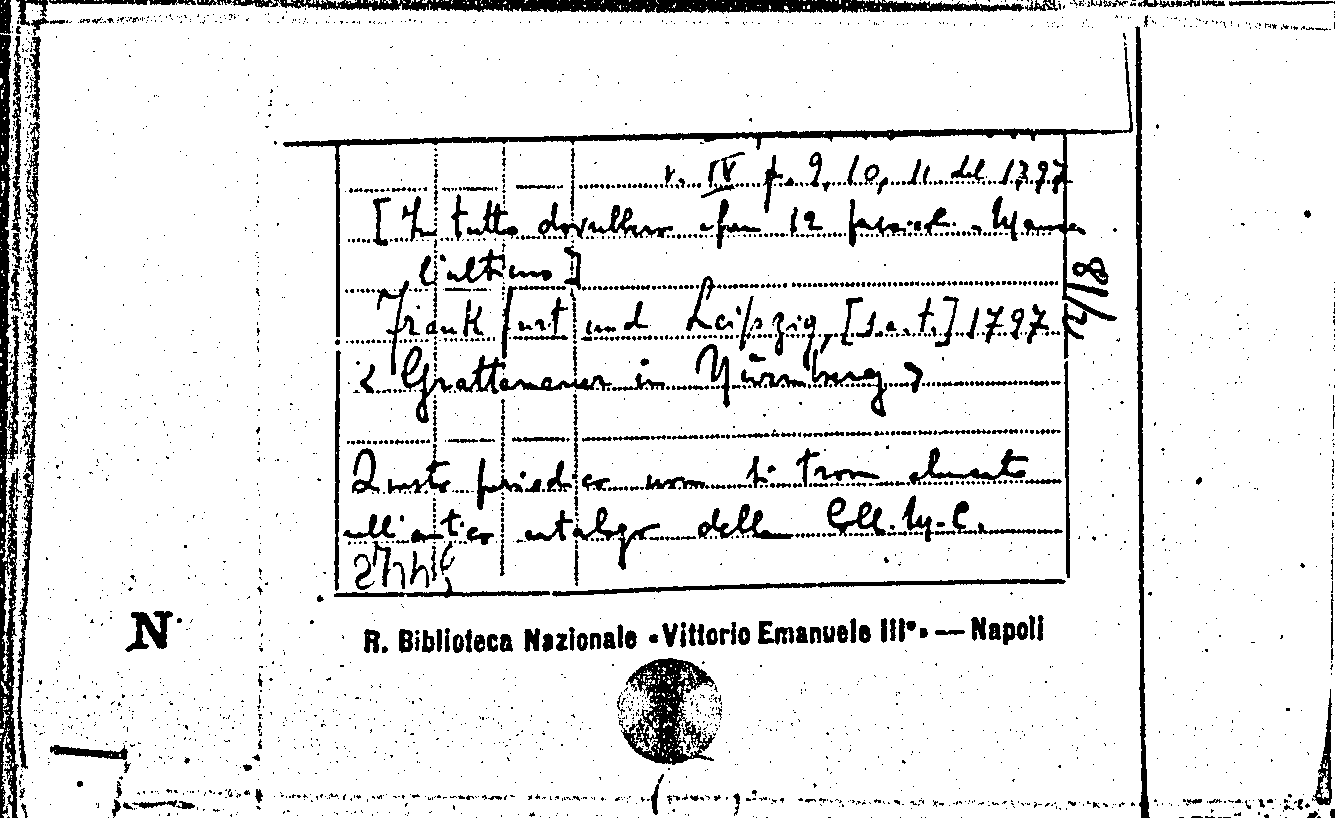 v. IV f. 9, 10, 11 del 1797
[In tutto dovrebbero 12 fascicoli. Manca
l'ultimo]
Frankfurt und Leipzig, [s.a.t.] 1797
< Grattenauer in Nürnberg >
12/18
Questo periodico non si trova elencato
nell'antico catalogo della Coll. M-C.
N
R. Biblioteca Nazionale «Vittorio Emanuele III°» — Napoli